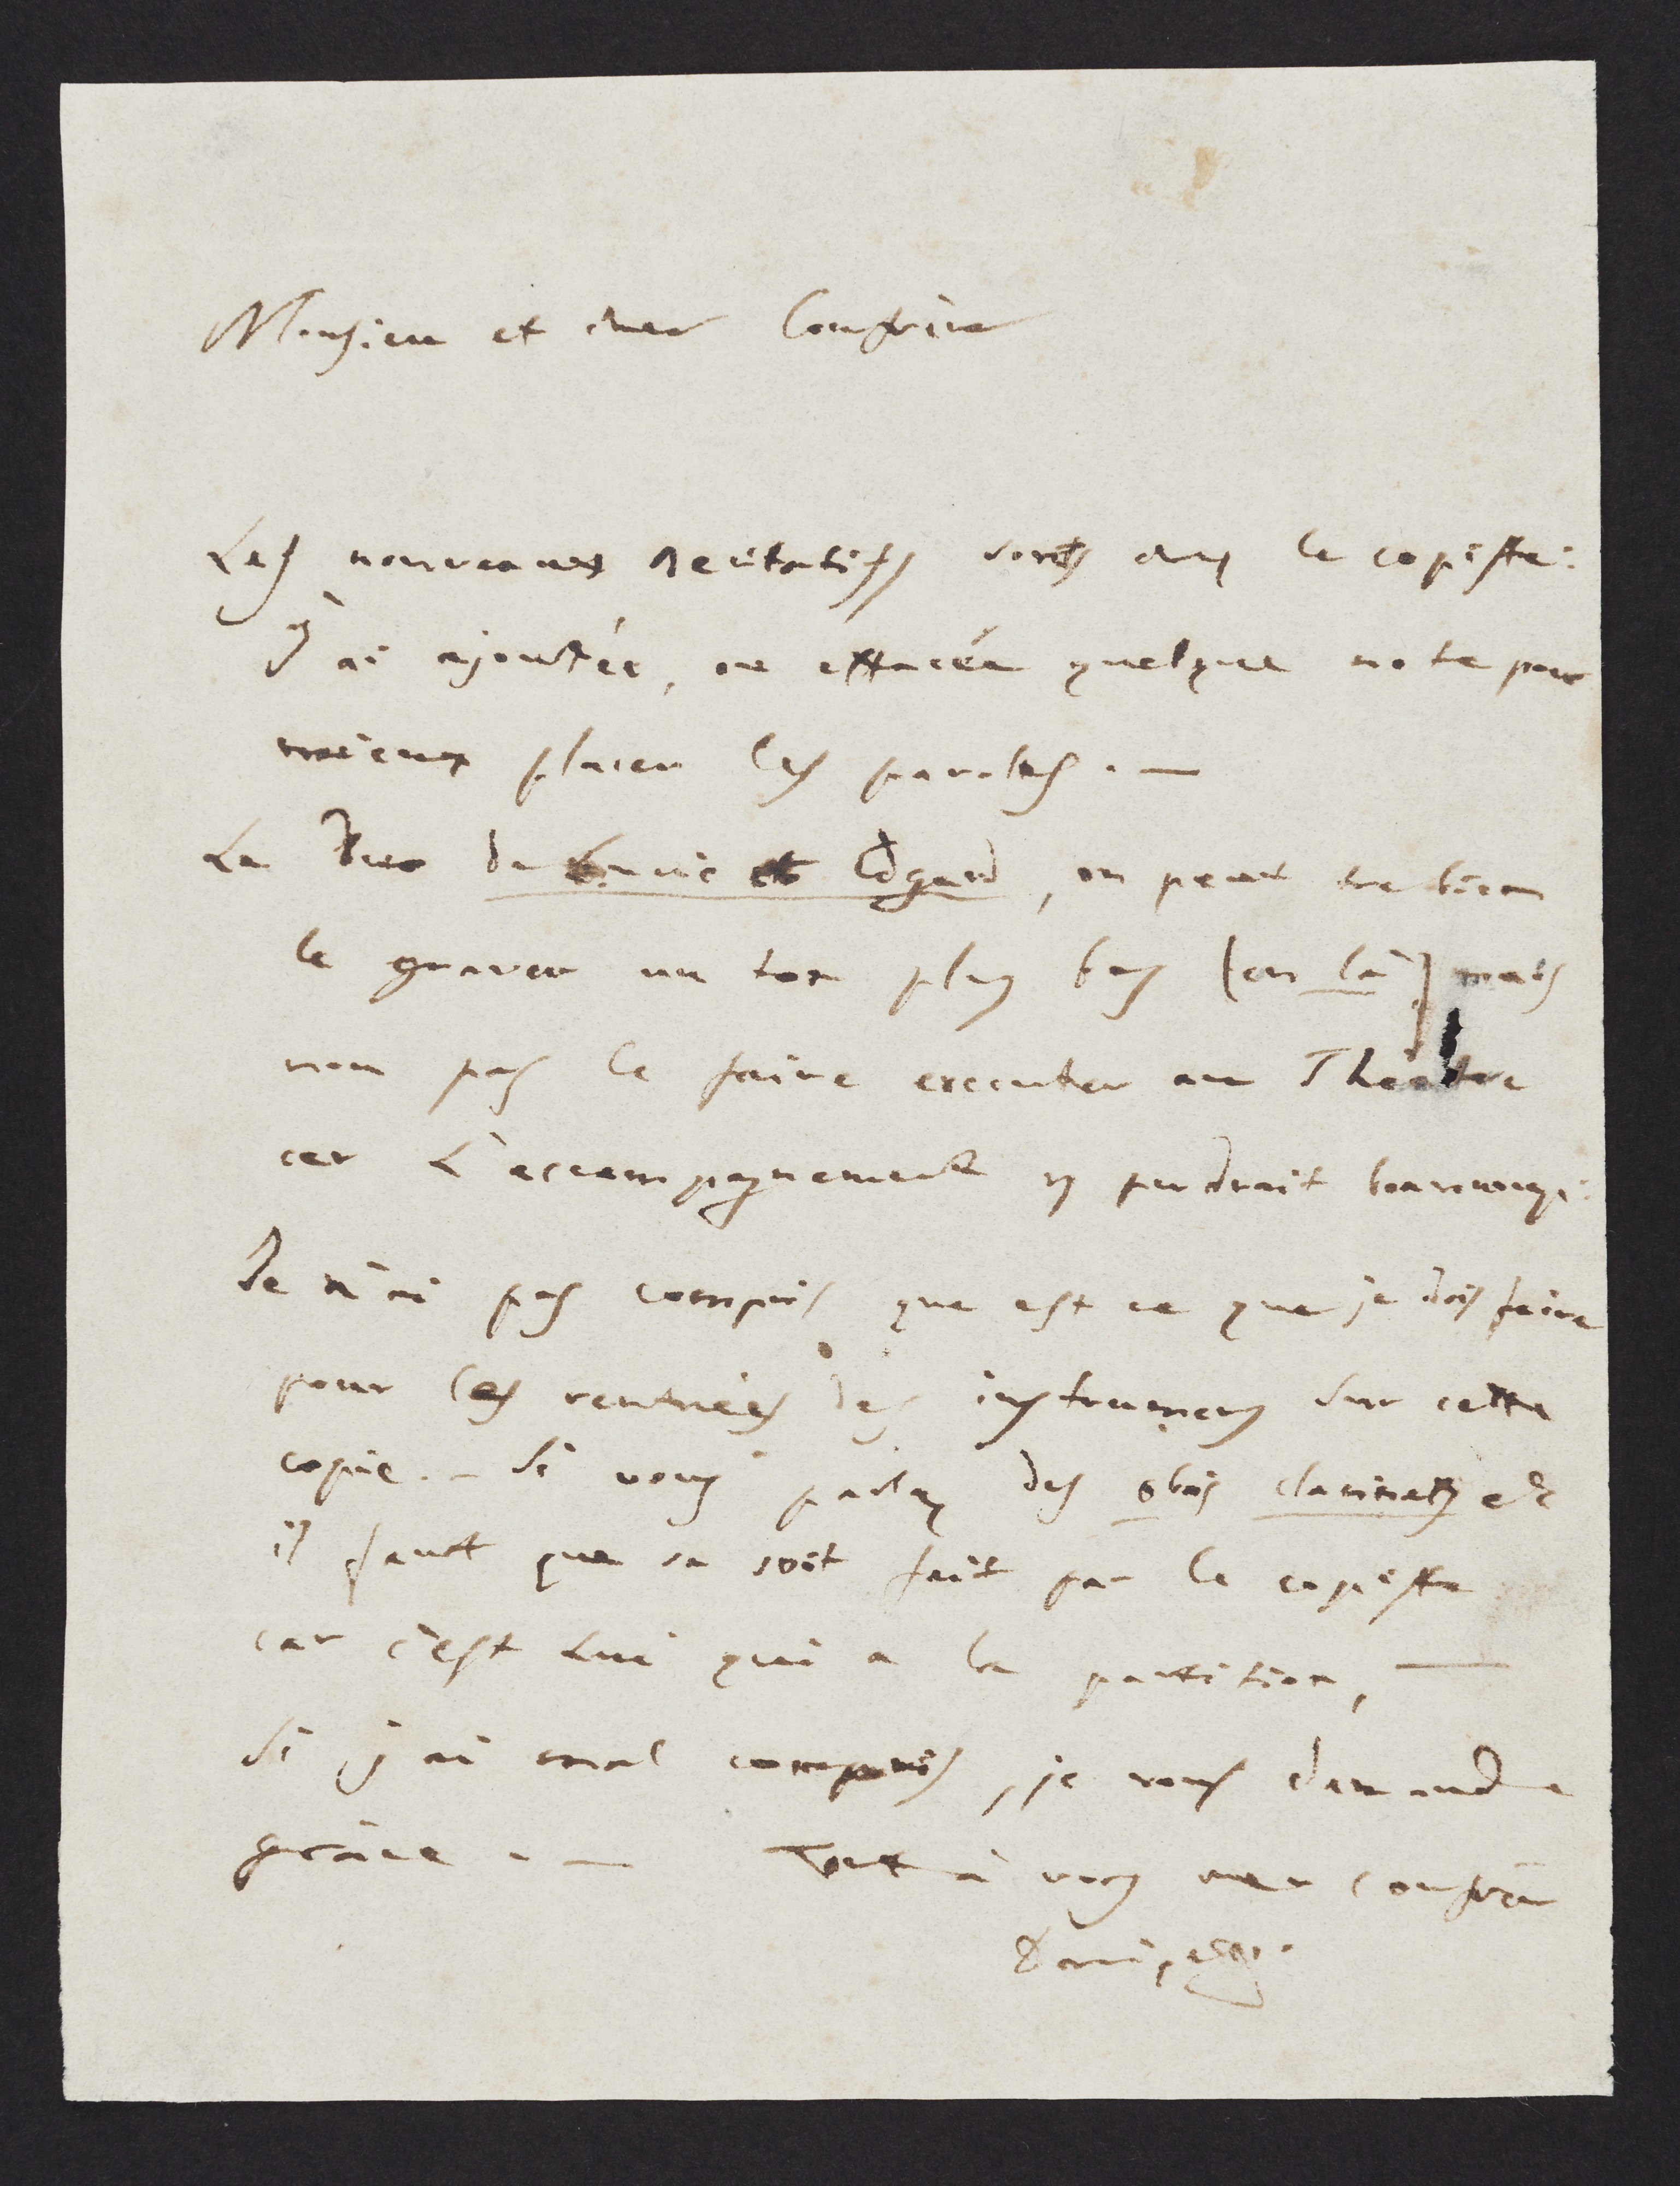 Monsieu et cher Confrère
Les nouveaux Recitatifs sonts chez le copiste:
J'ai ajoutée, ou effacée quelque note pour
mieux placer les paroles. —
Le Duo de et Edgard, on peut tre bien
le graver un ton plus bas (en la) mais
non pas le faire executer au Théatre
car L'accompagnement y perdrait
Je n'ai pas compris que est ce que je dois faire
pour les rentrées des instrumens sur cette
copie. — Si vous parlez des obois clarinets etc
il faut que sa soit fait par le copiste
car c'est Lui qui a la partition, —
Si j'ai mal compris, je vous demande
grâce. — Tout à vous mon confrère
Donizetti